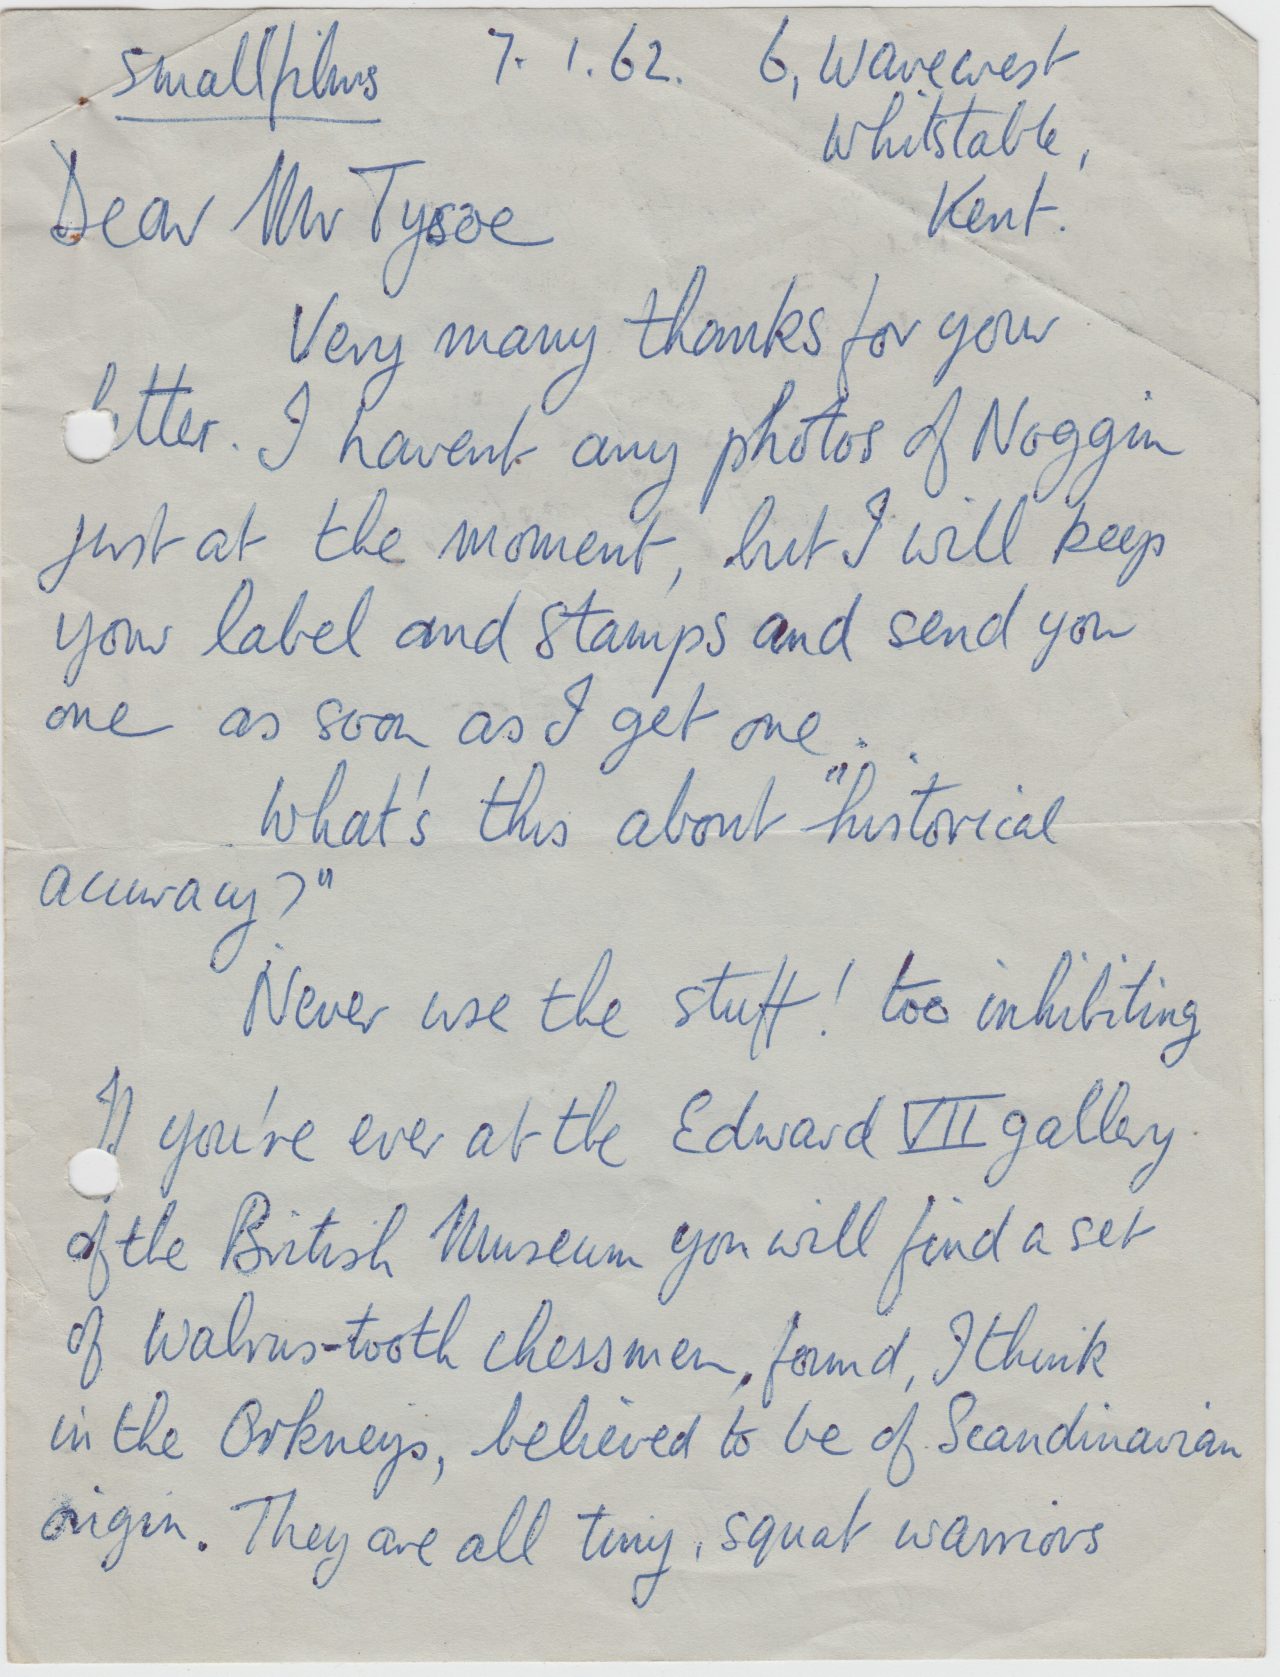 Smallfilms 7.1.62. 6, Wavecrest
Whitstable,
Kent.
Dear Mr Tysoe
Very many thanks for your
letter. I havent any photos of Noggin
just at the moment, but I will keep
your label and stamps and send you
one as soon as I get one..
What's this about "historical
accuracy?"
Never use the stuff! too inhibiting
If you're ever at the Edward VII gallery
of the British Museum you will find a set
of Walrus-tooth chessmen, found, I think
in the Orkneys, believed to be of Scandinavian
origin. They are all tiny, squat warriors